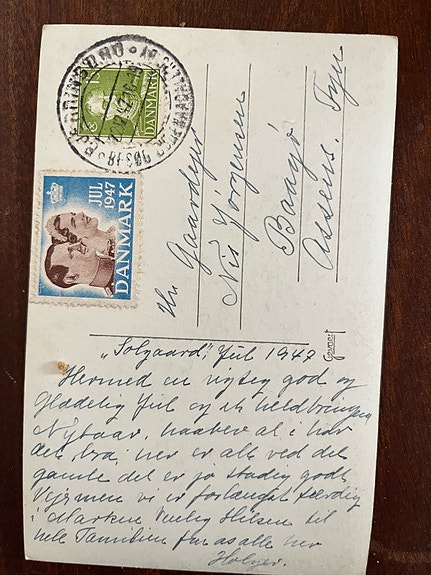 DANMARK
JUL
1947
DANMARK
Hr. Gaardejer
Nis Jørgensen
Baagø
Assens. Fyn
"Solgaard", Jul 1947
Hermed en rigtig god og
Glædelig Jul og et heldbringen
Nytaar, haaber at i har
det bra, her er alt ved det
gamle det er jo stadig godt
Vejr men vi er forlængst færdig
i Marken Venlig Hilsen til
hele Familien fra os alle her
Holger.